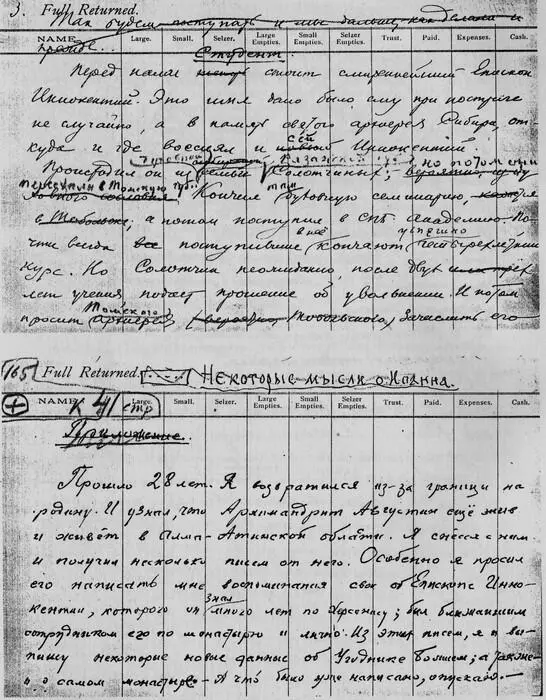 3. Full Returned.
Так будем поступать и мы дальше, как делали и
прежде.
NAME. Large. Small. Selzer. Large Empties. Small Empties. Trust. Paid. Expenses. Cash.
Студент.
Перед нами стоит смиреннейший Епископ
Иннокентий. Это имя дано было ему при постриге
не случайно, а в память святого архиерея Сибири, от-
куда и где воссиял и свт. Иннокентий.
Происходил он из семьи Солотчиных; но потом они
переехали в Томскую губ.
Кончил там духовную семинарию,
в Тобольске; а потом поступил в СПБ. Академию. По-
чти всегда все поступившие в неё успешно кончают четырехлетний
курс. Но Солотчин неожиданно, после двух или трёх
лет учения, подает прошение об увольнении. И потом
просит Томского архиерея, (вероятно, Тобольского) зачислить его
165 Full Returned. Некоторые мысли о. Иоанна.
NAME. Large. Small. Selzer. Large Empties. Small Empties. Trust. Paid. Expenses. Cash.
к 41 стр.
Приложение.
Прошло 28 лет. Я возвратился из-за границы на
родину. И узнал, что Архимандрит Августин ещё жив
и живёт в Алма-Атинской области. Я снёсся с ним
и получил несколько писем от него. Особенно я просил
его написать мне воспоминания свои об Епископе Инно-
кентии, которого он знал много лет по Херсонису; был ближайшим
сотрудником его по монастырю и лично. Из этих писем, я вы-
пишу некоторые новые данные об Угоднике Божием; а также
и о самом монастыре. А что было уже написано, опускаю.